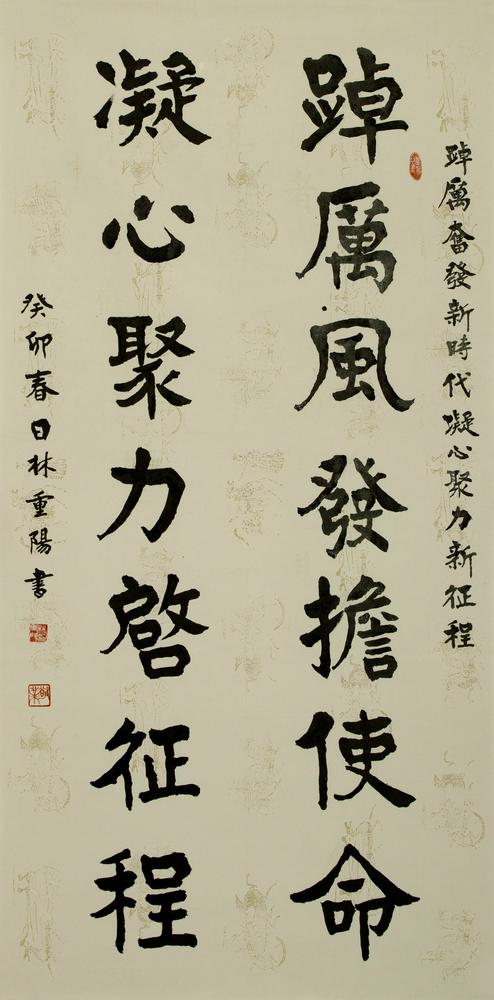 踔厲奮發新時代凝心聚力新征程
踔厲風發擔使命
凝心聚力啓征程
癸卯春日林重陽書